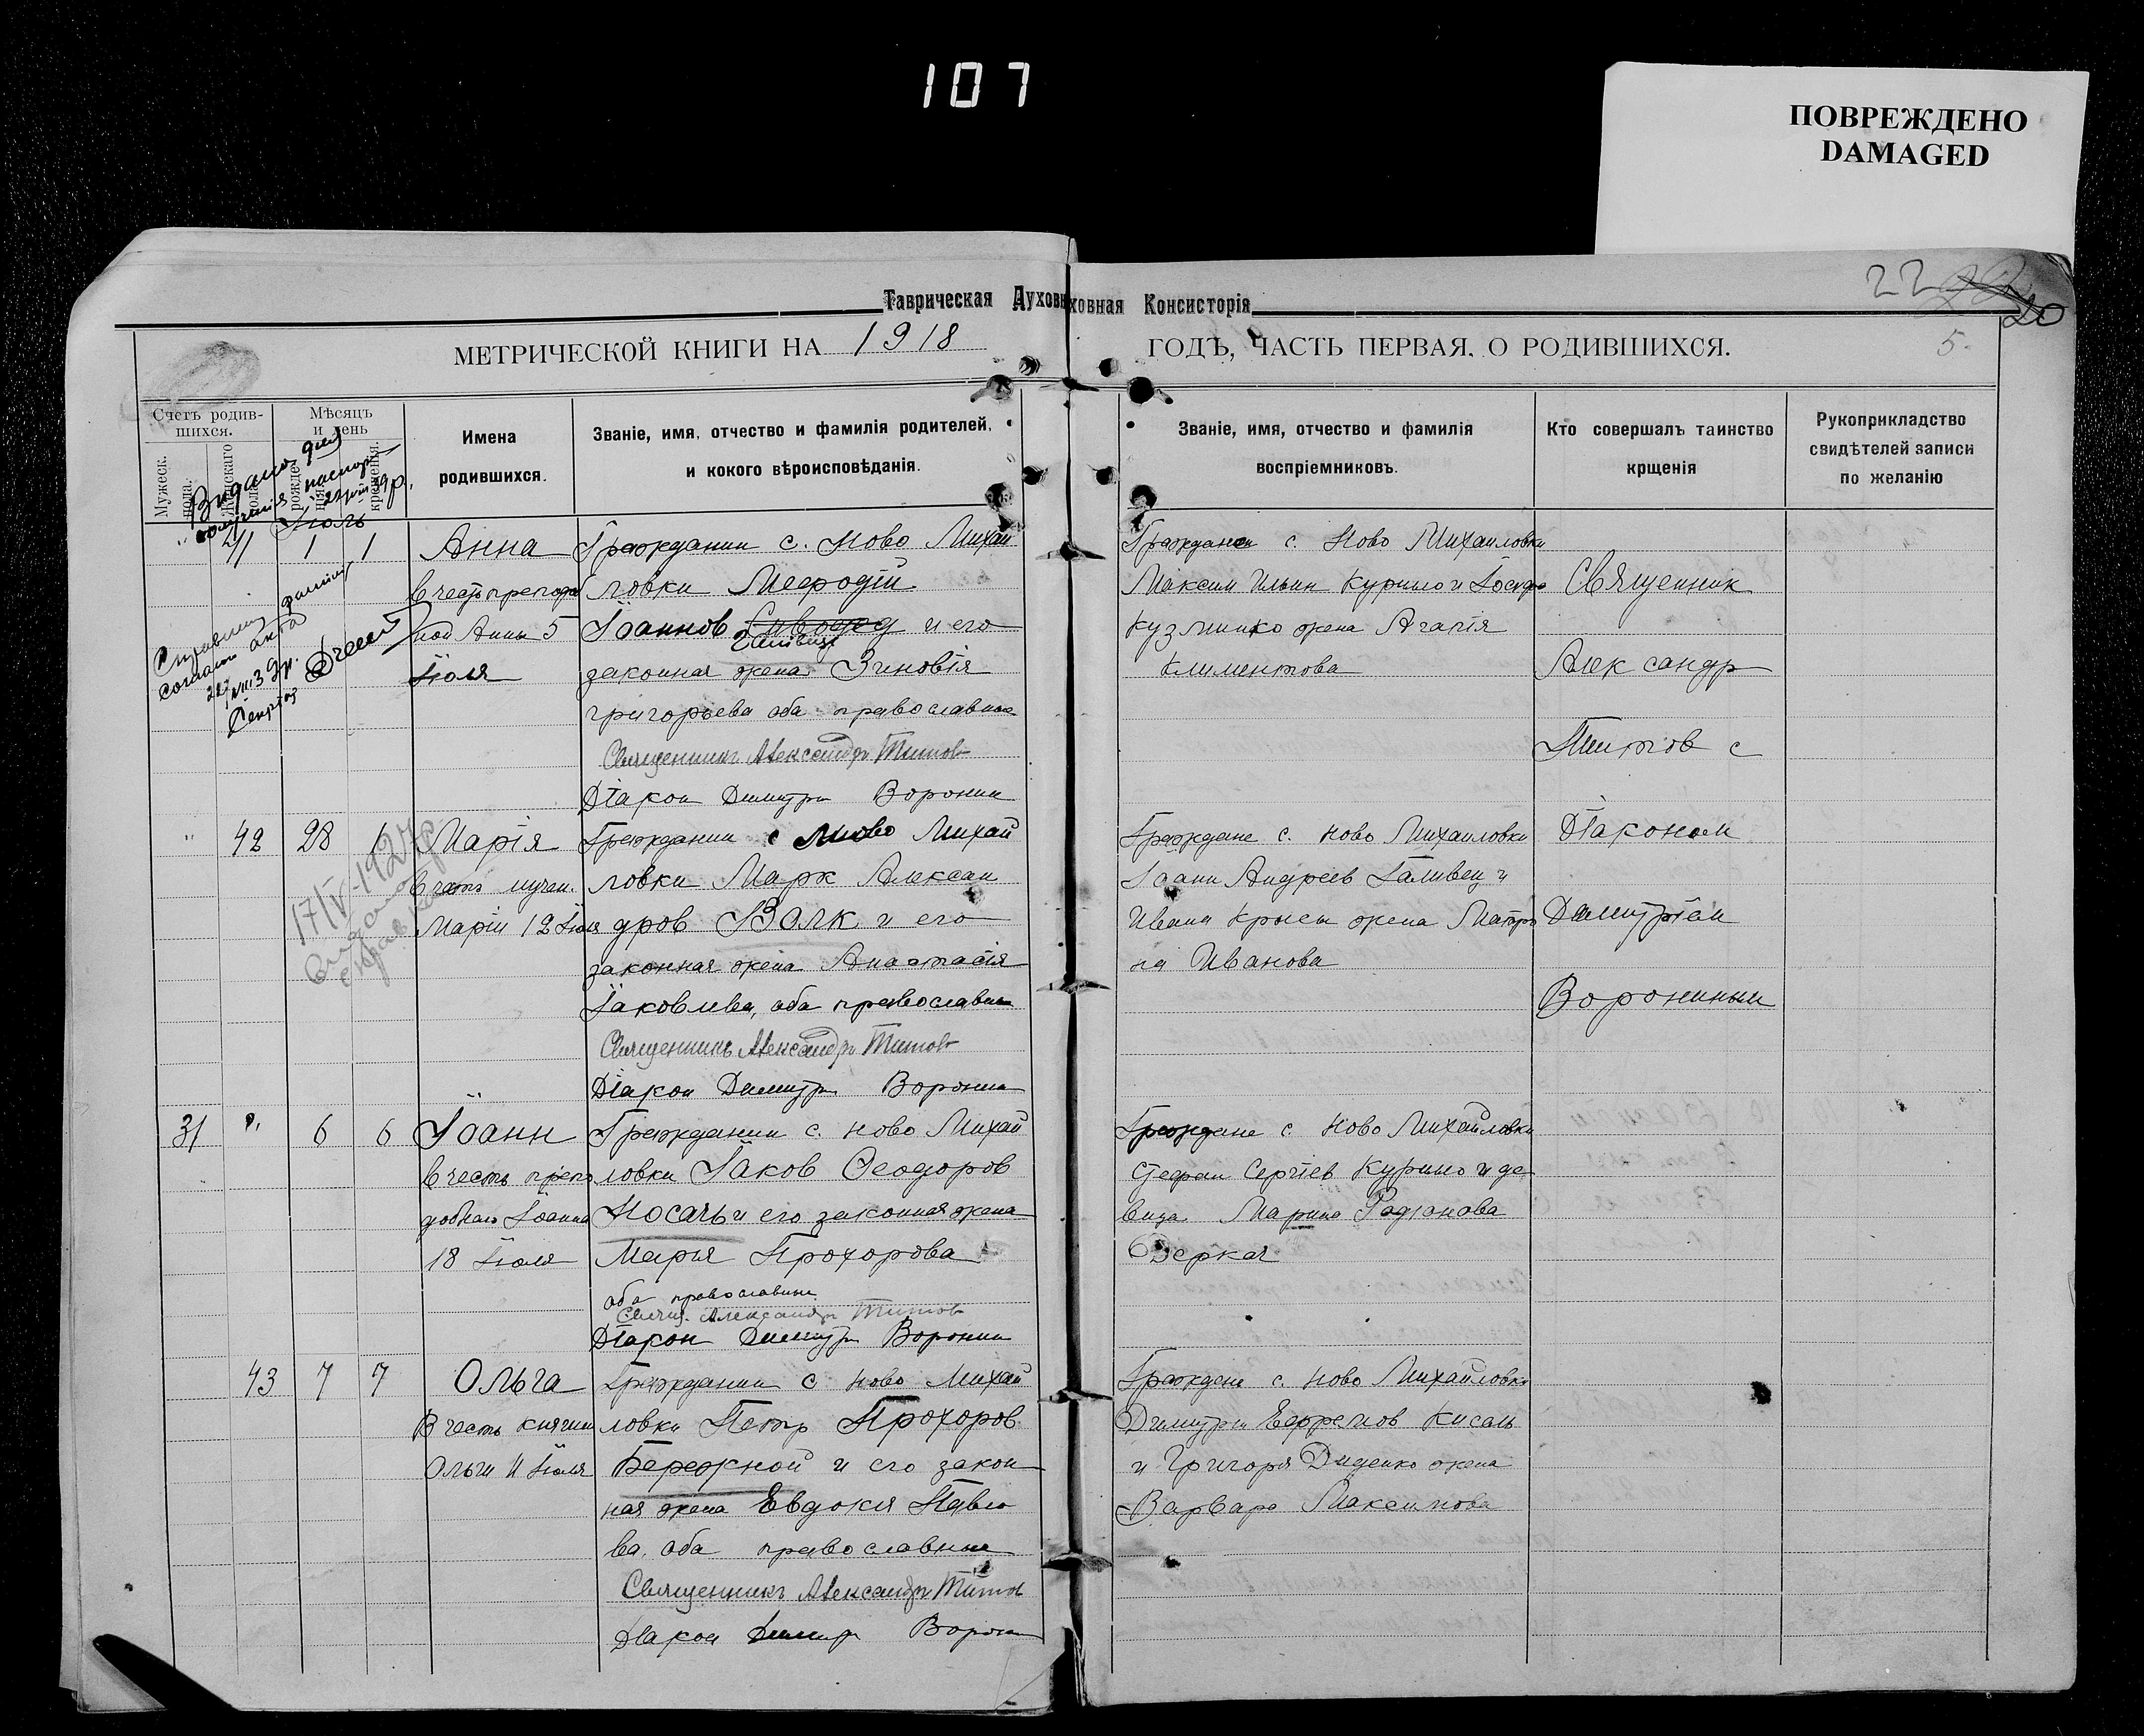 107
ПОВРЕЖДЕНО
DAMAGED
22
20
5.
Таврическая Духовная Консисторія
МЕТРИЧЕСКОЙ КНИГИ НА 1918
ГОДЪ, ЧАСТЬ ПЕРВАЯ, О РОДИВШИХСЯ.
Счетъ родив-
шихся.
Мужеск.
пола.
Женскаго
пола.
Мѣсяцъ
и день
рожде-
нія.
крещенія.
Имена
родившихся.
Званіе, имя, отчество и фамилія родителей,
и кокого вѣроисповѣданія.
Званіе, имя, отчество и фамилія
воспріемниковъ.
Кто совершалъ таинство
крщенія
Рукоприкладство
свидѣтелей записи
по желанію
Июль
41 1 1
Анна
в честь преподоб
ной Анны 5
Іюля
Гражданин с. Ново Михай
ловки Мефодій
Іоаннов и его
законная жена Зиновія
Григорьева оба православные
Священникъ Александръ Титов
Діакон Димитри Воронин
Граждане с. Ново Михаиловки
Максим Ильин Курило и
Кузминко жена Агапія
Климентова
Священник
Александр
Титов с
Діаконом
Димитріем
Ворониным
42 28 1
Марія
в честь мучен.
Маріи 12 Іюля
17/IV-1927
Гражданин с Ново Михай
ловки Марк Алексан
дров Волк и его
законная жена Анастасія
Іаковлева, оба православны
Священникъ Александръ Титов
Діакон Димитр Воронин
Граждане с. Ново Михаиловки
Іоанн Андреев Галивец и
Ивана Крысы жена Матро
на Иванова
31 6 6
Іоанн
в честь препо
добнаго Іоанна
18 Іюля
Гражданин с. Ново Михай
ловки Іаков Феодоров
Носачь и его законная жена
Марья Прохорова
оба православные
Свящ. Александръ Титов
Діакон Димитр Воронин
Граждане с. Ново Михайловки
Стефан Сергіев Курило и де
вица Марина Родіонова
Деркач
43 7 7
Ольга
В честь княгин
Ольги 11 Іюля
Гражданин с Ново Михай
ловки Петр Прохоров
Бережной и его закон
ная жена Евдокія Павло
ва, оба православные
Священникъ Александръ Титов
Діакон Димитр Ворон
Граждане с. Ново Михайловки
Димитри Ефремов Кисель
и Григорія Диденко жена
Варвара Максимова